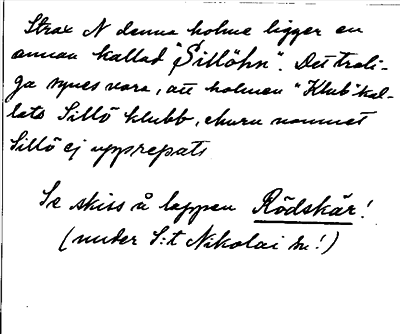 Strax N denna holme ligger en
annan kallad "Sillöhn". Det troli-
ga synes vara, att holmen "Klub" kal-
lats Sillö klubb, churu namnet
Sillö ej upprepats
Se skiss å lappen Rödskär!
(under S:t Nikolai sn!)